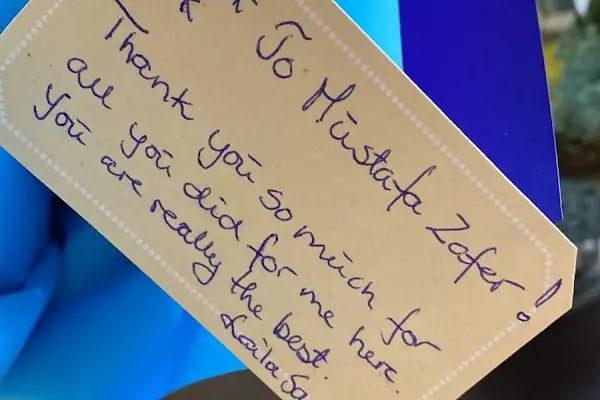 To Mustafa Zafer!
Thank you so much for
all you did for me here.
You are really the best.